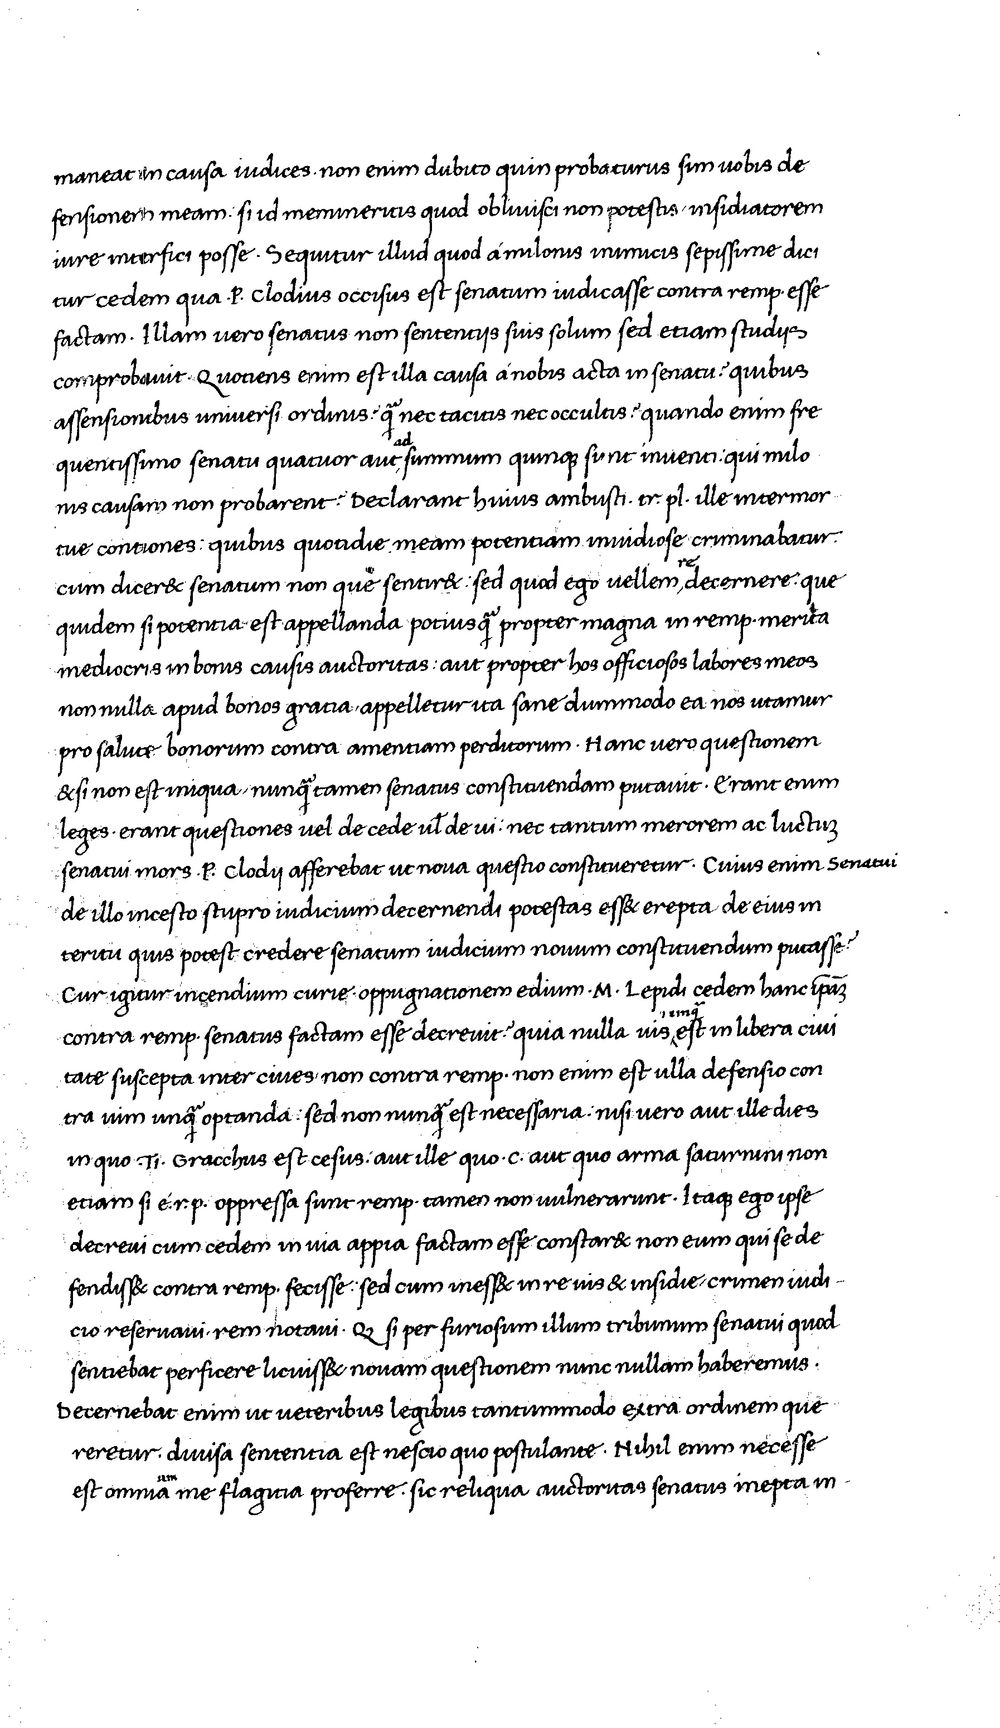 maneat in causa iudices. non enim dubito quin probaturus sim uobis de
fensionem meam: si id memineritis quod obliuisci non potestis, insidiatorem
iure interfici posse. Sequitur illud quod á milonis inimicis sepissime dici
tur cedem qua .P. Clodius occisus est senatum iudicasse contra remp. esse
factam. Illam uero senatus non sententijs suis solum sed etiam studijs
comprobauit. Quotiens enim est illa causa á nobis acta in senatu? quibus
assensionibus uniuersi ordinis? q̃ nec tacitis nec occultis? quando enim fre
quentissimo senatu quatuor aut ad summum quinq; sunt inuenti: qui milo
nis causam non probarent? Declarant huius ambusti. tr. pl. ille intermor
tue contiones: quibus quotidie meam potentiam inuidiose criminabatur:
cum diceret senatum non quẽ sentiret: sed quod ego uellem, re decernere: que
quidem si potentia est appellanda potiusq̃ propter magna in remp. merita
mediocris in bonis causis auctoritas: aut propter hos officiosos labores meos
non nulla apud bonos gratia, appelletur ita sane dummodo ea nos utamur
pro salute bonorum contra amentiam perditorum. Hanc uero questionem
& si non est iniqua, nunq̃ tamen senatus constituendam putauit. Erant enim
leges. erant questiones uel de cede ul̃ de ui: nec tantum merorem ac luctuʒ
senatui mors .P. Clodij afferebat ut noua questio constitueretur. Cuius enim Senatui
de illo incesto stupro iudicium decernendi potestas ess& erepta de eius in
teritu quis potest credere senatum iudicium nouum constituendum putasse?
Cur igitur incendium curie. oppugnationem edium .M. Lepidi cedem hanc ip̃aʒ
contra remp. senatus factam esse decreuit? quia nulla uis umq̃ est in libera ciui
tate suscepta inter ciues, non contra remp. non enim est ulla defensio con
tra uim unq̃ optanda: sed non nunq̃ est necessaria: nisi uero aut ille dies
in quo .Ti. Gracchus est cesus: aut ille quo .C. aut quo arma saturnini non
etiam si é.r.p. oppressa sunt remp. tamen non uulnerarunt. Itaq; ego ipse
decreui cum cedem in uia appia factam esse constar& non eum qui se de
fendiss& contra remp. fecisse: sed cum iness& in re uis & insidie, crimen iudi-
cio reseruaui, rem notaui. Qʒ si per furiosum illum tribunum senatui quod
sentiebat perficere licuiss& nouam questionem nunc nullam haberemus.
Decernebat enim ut ueteribus legibus tantummodo extra ordinem que
reretur. diuisa sententia est nescio quo postulante. Nihil enim necesse
est omnia um me flagitia proferre. sic reliqua auctoritas senatus inepta in